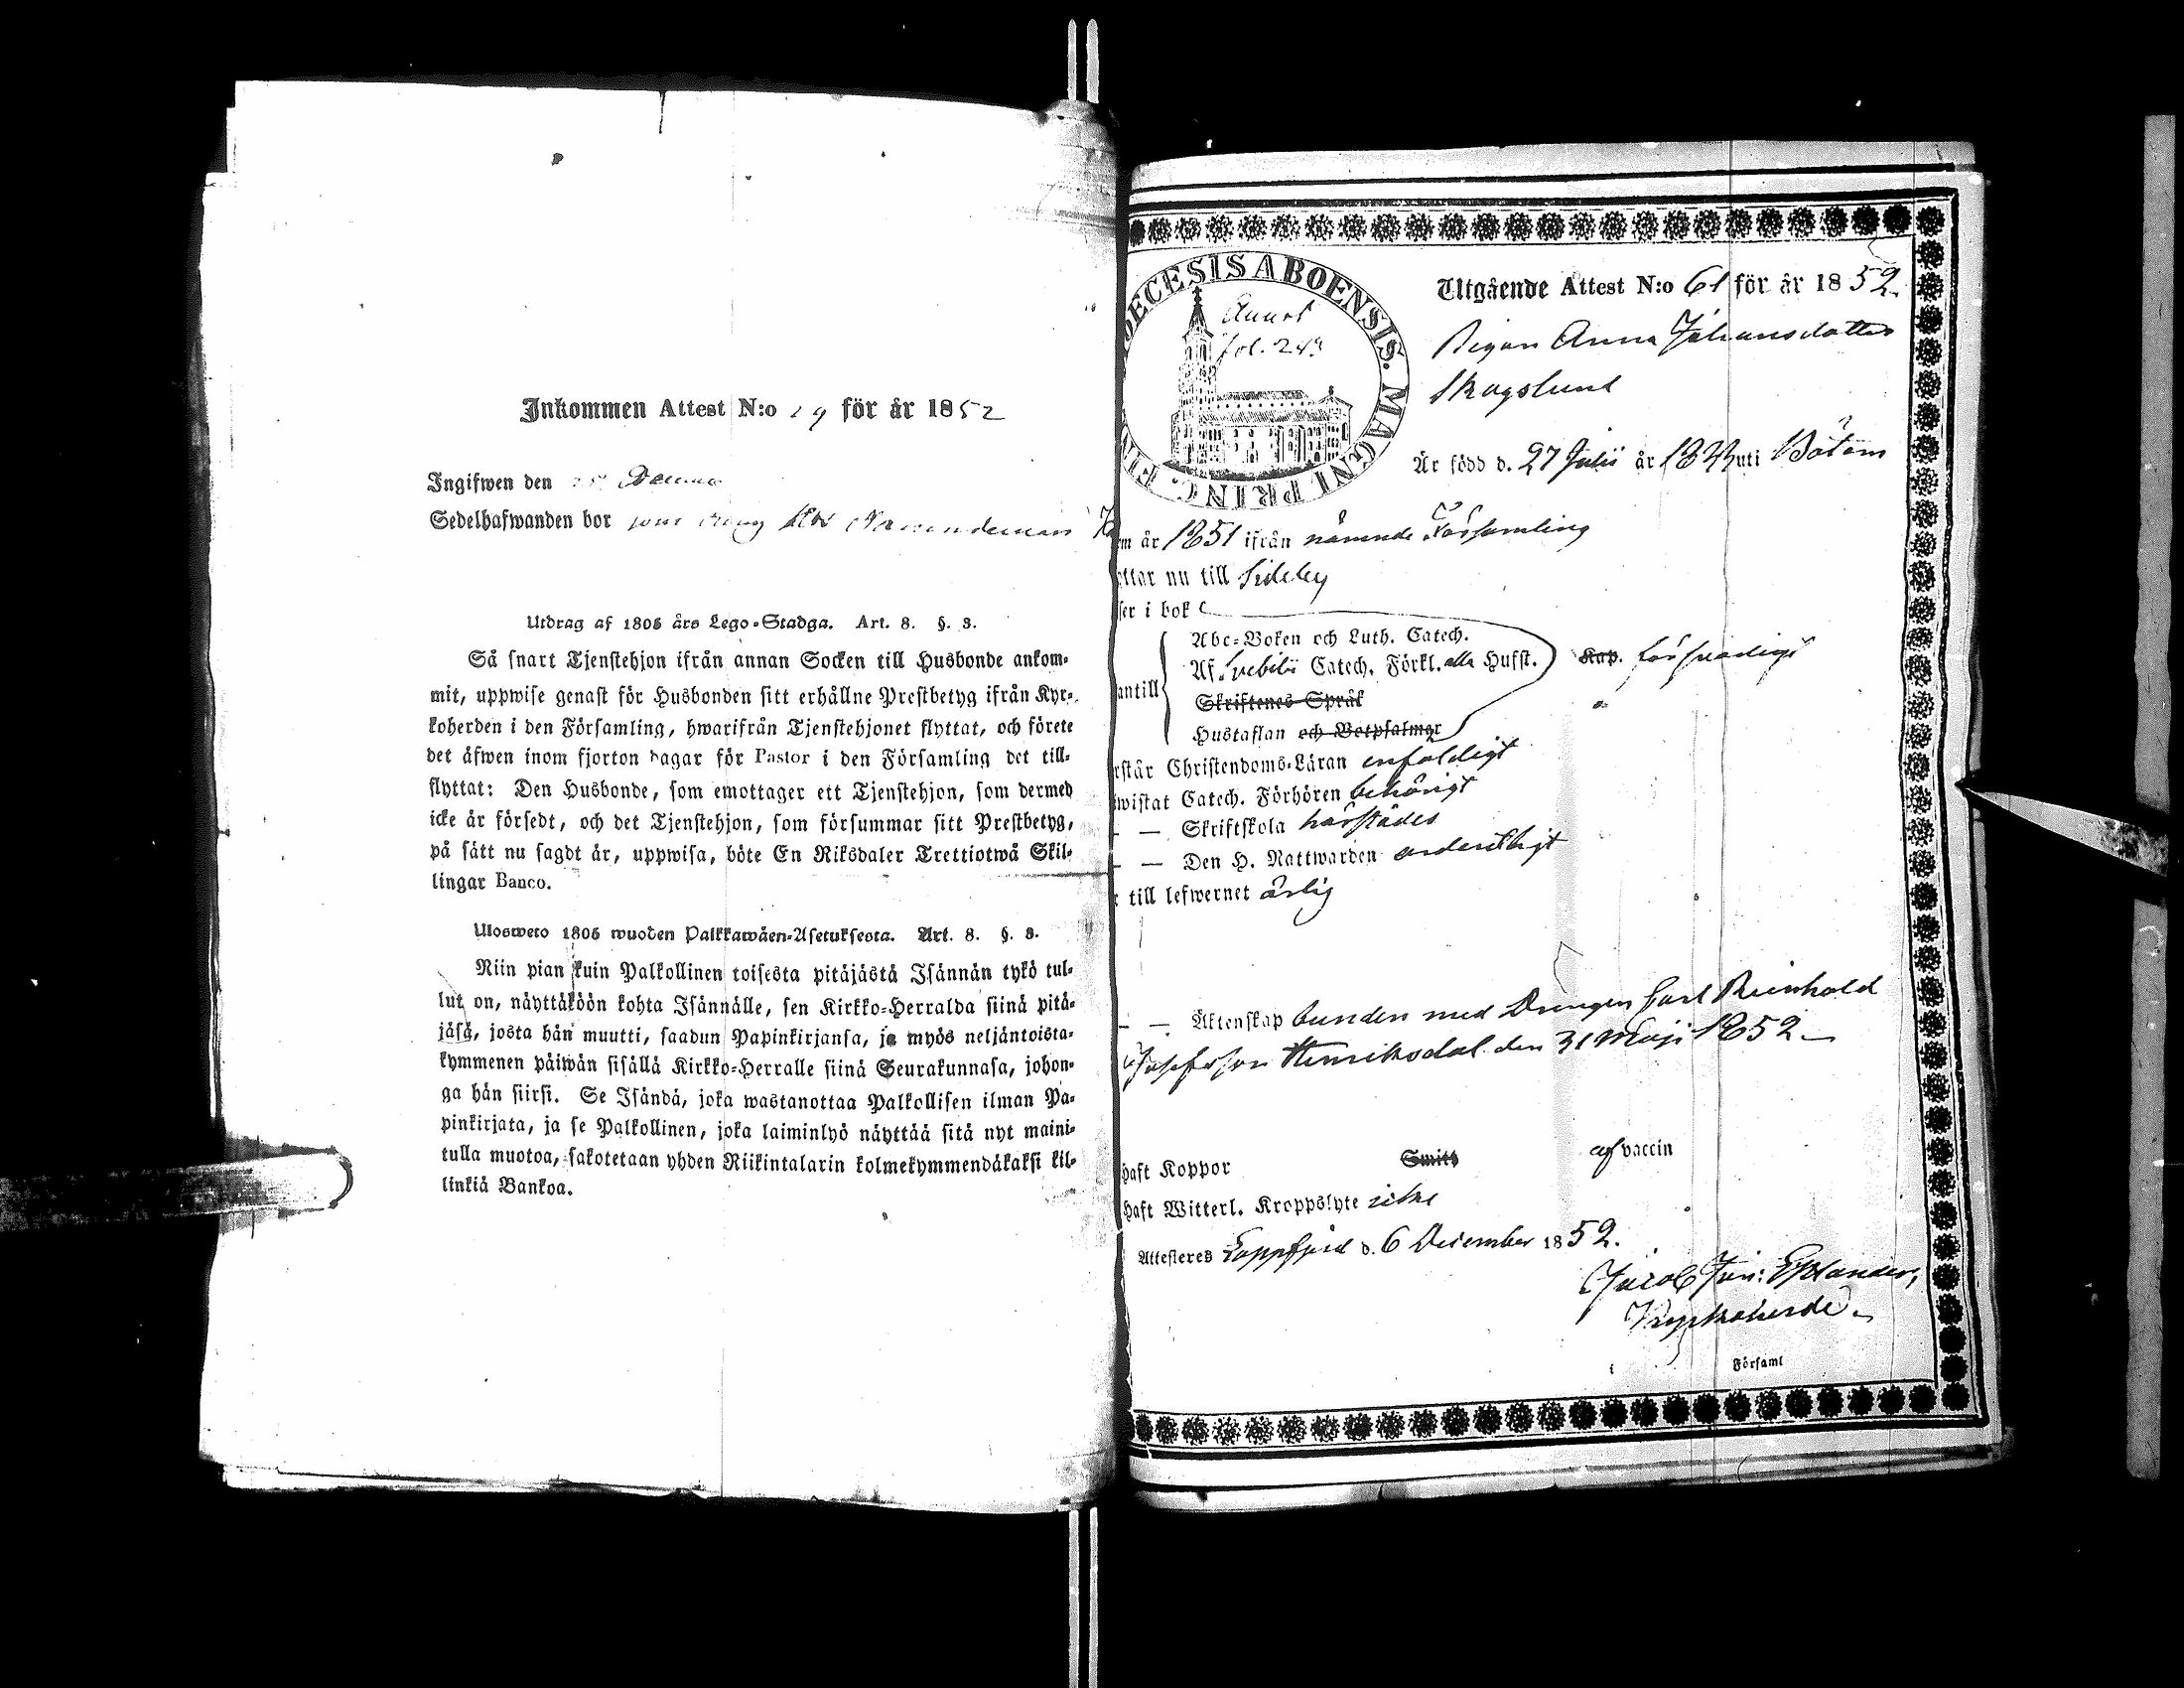 Inkommen Attest N:o 29 för år 1852
Ingifwen den
Sedelhafwanden bor som dräng
Utdrag af 1805 års Lego-Stadga. Art. 8. §. 3.
Så snart Tjenstehjon ifrån annan Socken till Husbonde ankom-
mit, uppwise genast för Husbonden sitt erhållne Prestbetyg ifrån Kyr-
koherden i den Församling, hwarifrån Tjenstehjonet flyttat, och förete
det äfwen inom fjorton dagar för Pastor i den Församling det till-
flyttat: Den Husbonde, som emottager ett Tjenstehjon, som dermed
icke är försedt, och det Tjenstehjon, som försummar sitt Prestbetyg,
på sätt nu sagdt är, uppwisa, böte En Riksdaler Trettiotwå Skil-
lingar Banco.
Ulosweto 1805 wuoden Palkkawäen-Asetuksesta. Art. 8. §. 3.
Niin pian kuin Palkollinen toisesta pitäjästä Isännän tykö tul-
lut on, näyttäköön kohta Isännälle, sen Kirkko-Herralda siinä pitä-
jäsä, josta hän muutti, saadun Papinkirjansa, ja myös neljäntoista-
kymmenen päiwän sisällä Kirkko-Herralle siinä Seurakunnasa, johon-
ga hän siirsi. Se Isändä, joka wastanottaa Palkollisen ilman Pa-
pinkirjata, ja se Palkollinen, joka laiminlyö näyttää sitä nyt maini-
tulla muotoa, sakotetaan yhden Riikintalarin kolmekymmendäkaksi kil-
linkiä Bankoa.
ŒCESIS ABOENSIS. MAGNI PRINC. FIN
Fol. 249
Utgående Attest N:o 61 för år 1852.
Pigan Anna Johansdotter
Skogslund
Är född d. 27 Julii år 1833 uti Bötom
m år 1851 ifrån nämnde Församling
ttar nu till Sideby
ser i bok
Abc-Boken och Luth. Catech.
Af Svebilii Catech. Förkl. alla Hufst. Kap. försvarligt
antill
Skriftenes Språk
Hustaflan och Botpsalmar
rstår Christendoms-Läran enfaldigt
wistat Catech. Förhören behörigt
— — Skriftskola härstädes
— — Den H. Nattwarden ordentligt
till lefwernet ärlig
— — Äktenskap bunden med Drängen Carl Reinhold
Josefsson Henriksdal den 31 Maji 1852 —
haft Koppor Smitt af vaccin
haft Witterl. Kroppslyte icke
Attesteres Lappfjerd d. 6 December 1852.
Jacob Jon: Estlander,
Kyrkoherde.
Församl